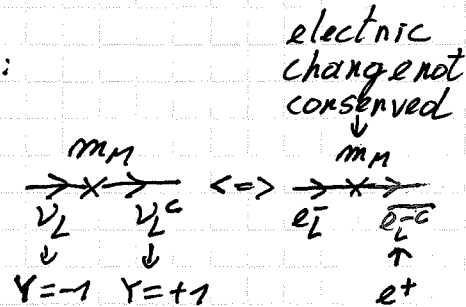 electric
: charge not
conserved
↓
m_M m_M
→×→ <=> →×→
ν_L ν_L^c e_L^- \overline{e_L^{-c}}
↓ ↓ ↑
Y=-1 Y=+1 e^+